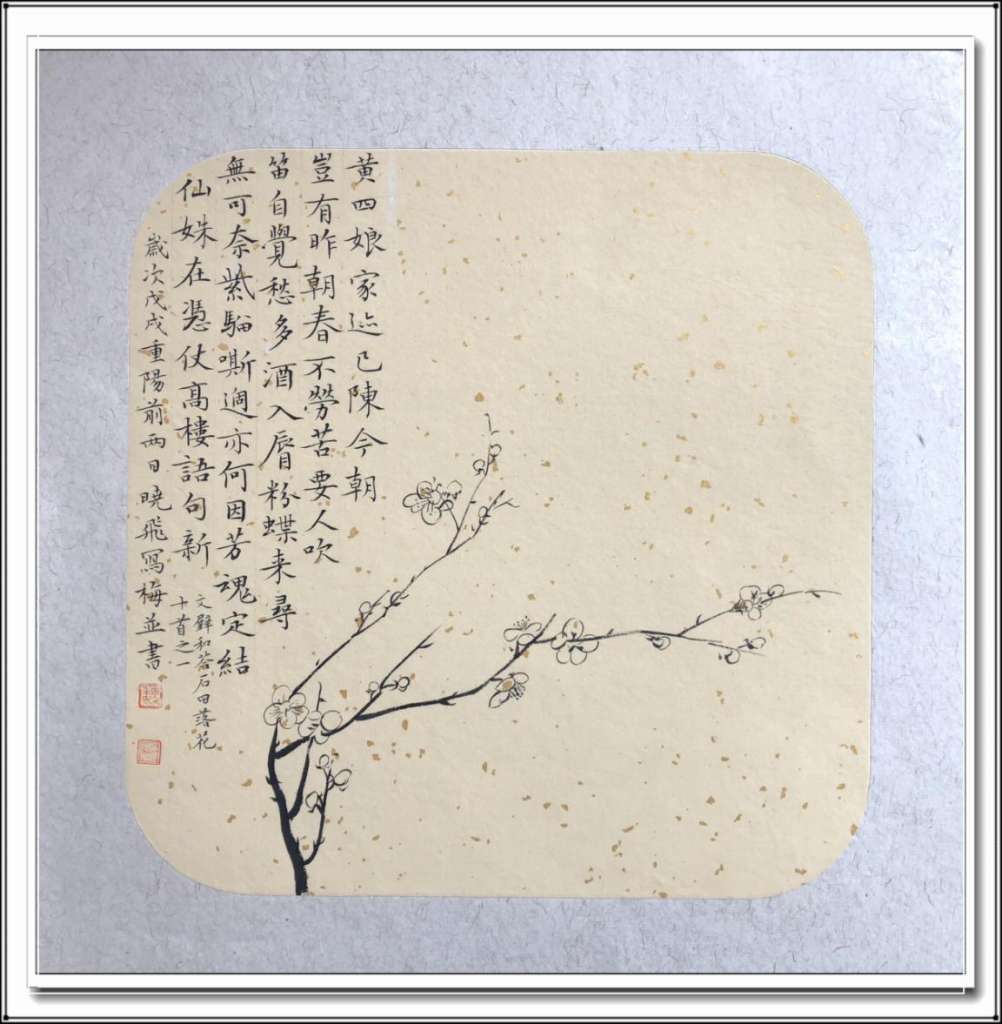 黄四娘家迹已陳今朝
豈有昨朝春不勞苦要人吹
笛自覺愁多酒入脣粉蝶来尋
無可奈紫騮嘶過亦何因芳魂定結
仙姝在憑仗高樓語句新
文壁和答石田落花
十首之一
歲次戊戌重陽前兩日曉飛寫梅並書